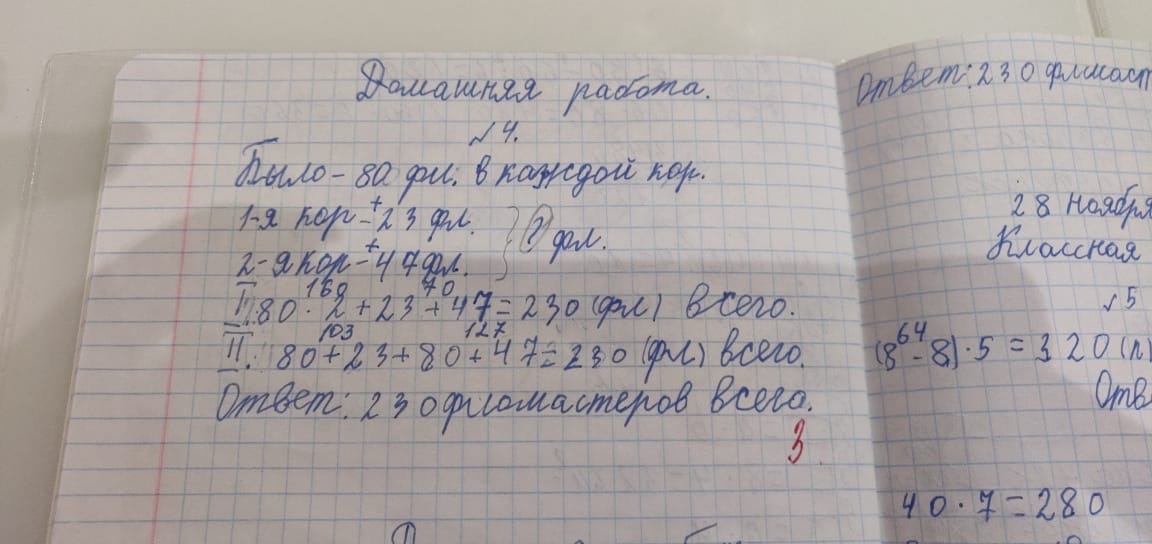 Домашняя работа.
√4.
Было - 80 фл. в каждой кор.
1-я кор - + 23 фл.
2-я кор - + 47 фл.
? фл.
160 70
I. 80 · 2 + 23 + 47 = 230 (фл) всего.
103 127
II. 80 + 23 + 80 + 47 = 230 (фл) всего.
Ответ: 230 фломастеров всего.
3
Ответ: 230 флмаст
28 ноября
Классная
√5
64
(8 - 8) · 5 = 320 (п)
Отв
40 · 7 = 280